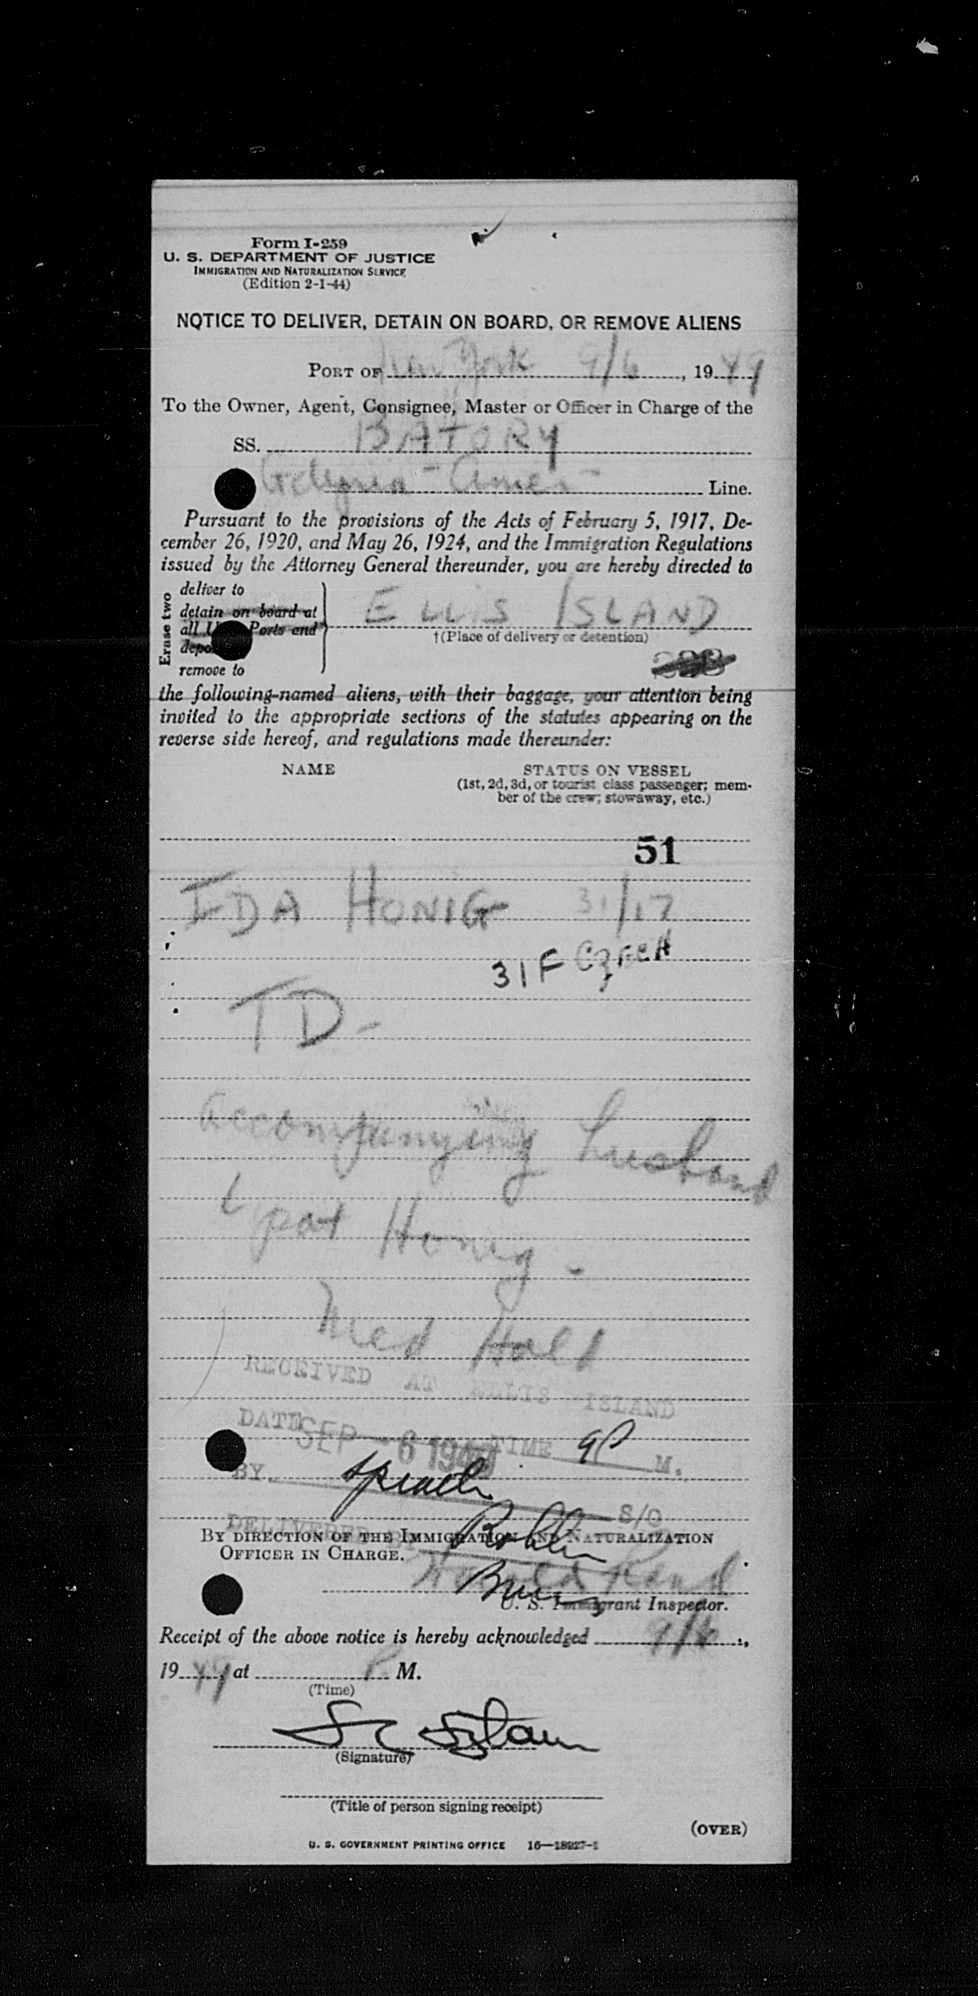 Form I-259
U. S. DEPARTMENT OF JUSTICE
IMMIGRATION AND NATURALIZATION SERVICE
(Edition 2-1-44)
NOTICE TO DELIVER, DETAIN ON BOARD, OR REMOVE ALIENS
PORT OF New York 9/6, 1949
To the Owner, Agent, Consignee, Master or Officer in Charge of the
SS. BATORY
Gdynia - Amer - Line.
Pursuant to the provisions of the Acts of February 5, 1917, De-
cember 26, 1920, and May 26, 1924, and the Immigration Regulations
issued by the Attorney General thereunder, you are hereby directed to
Erase two
deliver to
detain on board at
all U Ports and
depo
remove to
ELLIS ISLAND
†(Place of delivery or detention)
the following-named aliens, with their baggage, your attention being
invited to the appropriate sections of the statutes appearing on the
reverse side hereof, and regulations made thereunder:
NAME STATUS ON VESSEL
(1st, 2d, 3d, or tourist class passenger; mem-
ber of the crew; stowaway, etc.)
51
IDA HONIG 31/17
31 F CZECH
TD -
accompanying husband
Lipot Honig -
Med Hold
RECEIVED AT ELLIS ISLAND
DATE SEP - 6 1949 TIME 9P M.
BY S/O
DELIVERED BY
BY DIRECTION OF THE IMMIGRATION AND NATURALIZATION
OFFICER IN CHARGE.
Harold Rand
U. S. Immigrant Inspector.
Receipt of the above notice is hereby acknowledged 9/6,
1949 at P M.
(Time)
(Signature)
(Title of person signing receipt)
(OVER)
U. S. GOVERNMENT PRINTING OFFICE 16—18927-1